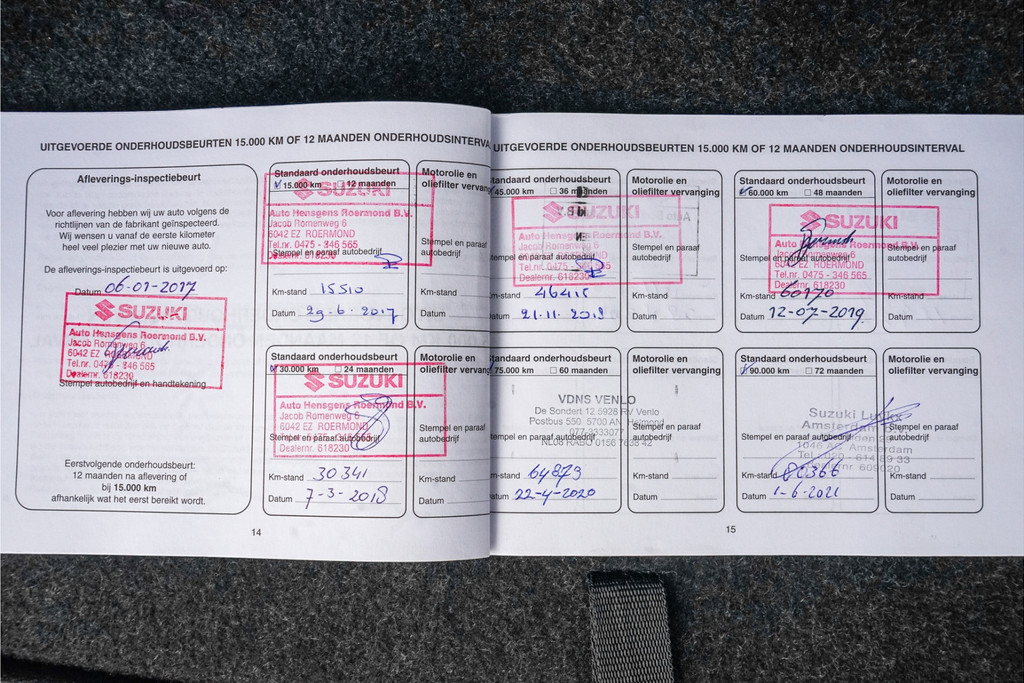 UITGEVOERDE ONDERHOUDSBEURTEN 15.000 KM OF 12 MAANDEN ONDERHOUDSINTERVA
Afleverings-inspectiebeurt
Voor aflevering hebben wij uw auto volgens de
richtlijnen van de fabrikant geïnspecteerd.
Wij wensen u vanaf de eerste kilometer
heel veel plezier met uw nieuwe auto.
De afleverings-inspectiebeurt is uitgevoerd op:
Datum 06-01-2017
SUZUKI
Auto Hensgens Roermond B.V.
Jacob Romenweg 6
6042 EZ ROERMOND
Tel.nr. 0475 - 346 565
Dealernr. 618230
Stempel autobedrijf en handtekening
Eerstvolgende onderhoudsbeurt:
12 maanden na aflevering of
bij 15.000 km
afhankelijk wat het eerst bereikt wordt.
Standaard onderhoudsbeurt
15.000 km 12 maanden
SUZUKI
Auto Hensgens Roermond B.V.
Jacob Romenweg 6
6042 EZ ROERMOND
Tel.nr. 0475 - 346 565
Dealernr. 618230
Stempel en paraaf autobedrijf
Km-stand 15510
Datum 29-6-2017
Motorolie en
oliefilter vervang
Stempel en paraaf
autobedrijf
Km-stand
Datum
Standaard onderhoudsbeurt
30.000 km 24 maanden
SUZUKI
Auto Hensgens Roermond B.V.
Jacob Romenweg 6
6042 EZ ROERMOND
Stempel en paraaf autobedrijf
Dealernr. 618230
Km-stand 30341
Datum 7-3-2018
Motorolie en
oliefilter vervang
Stempel en paraaf
autobedrijf
Km-stand
Datum
14
UITGEVOERDE ONDERHOUDSBEURTEN 15.000 KM OF 12 MAANDEN ONDERHOUDSINTERVAL
tandaard onderhoudsbeurt
45.000 km 36 maanden
SUZUKI
Auto Hensgens Roermond B.V.
Jacob Romenweg 6
6042 EZ ROERMOND
tempel en paraaf autobedrijf
Tel.nr. 0475 - 346 565
Dealernr. 618230
m-stand 46415
atum 21-11-2018
Motorolie en
oliefilter vervanging
Stempel en paraaf
autobedrijf
Km-stand
Datum
Standaard onderhoudsbeurt
60.000 km 48 maanden
SUZUKI
Auto Hensgens Roermond B.V.
Jacob Romenweg 6
6042 EZ ROERMOND
Stempel en paraaf autobedrijf
Tel.nr. 0475 - 346 565
Dealernr. 618230
Km-stand 60170
Datum 12-07-2019
Motorolie en
oliefilter vervanging
Stempel en paraaf
autobedrijf
Km-stand
Datum
tandaard onderhoudsbeurt
75.000 km 60 maanden
VDNS VENLO
De Sondert 12 5928 RV Venlo
Postbus 550 5700 AN Helmond
077-3333077
tempel en paraaf autobedrijf
m-stand 64873
atum 22-4-2020
Motorolie en
oliefilter vervanging
Stempel en paraaf
autobedrijf
Km-stand
Datum
Standaard onderhoudsbeurt
90.000 km 72 maanden
Suzuki
Amsterdam B.V.
Stempel en paraaf autobedrijf
Amsterdam
Km-stand 80366
Datum 1-6-2021
Motorolie en
oliefilter vervanging
Stempel en paraaf
autobedrijf
Km-stand
Datum
15